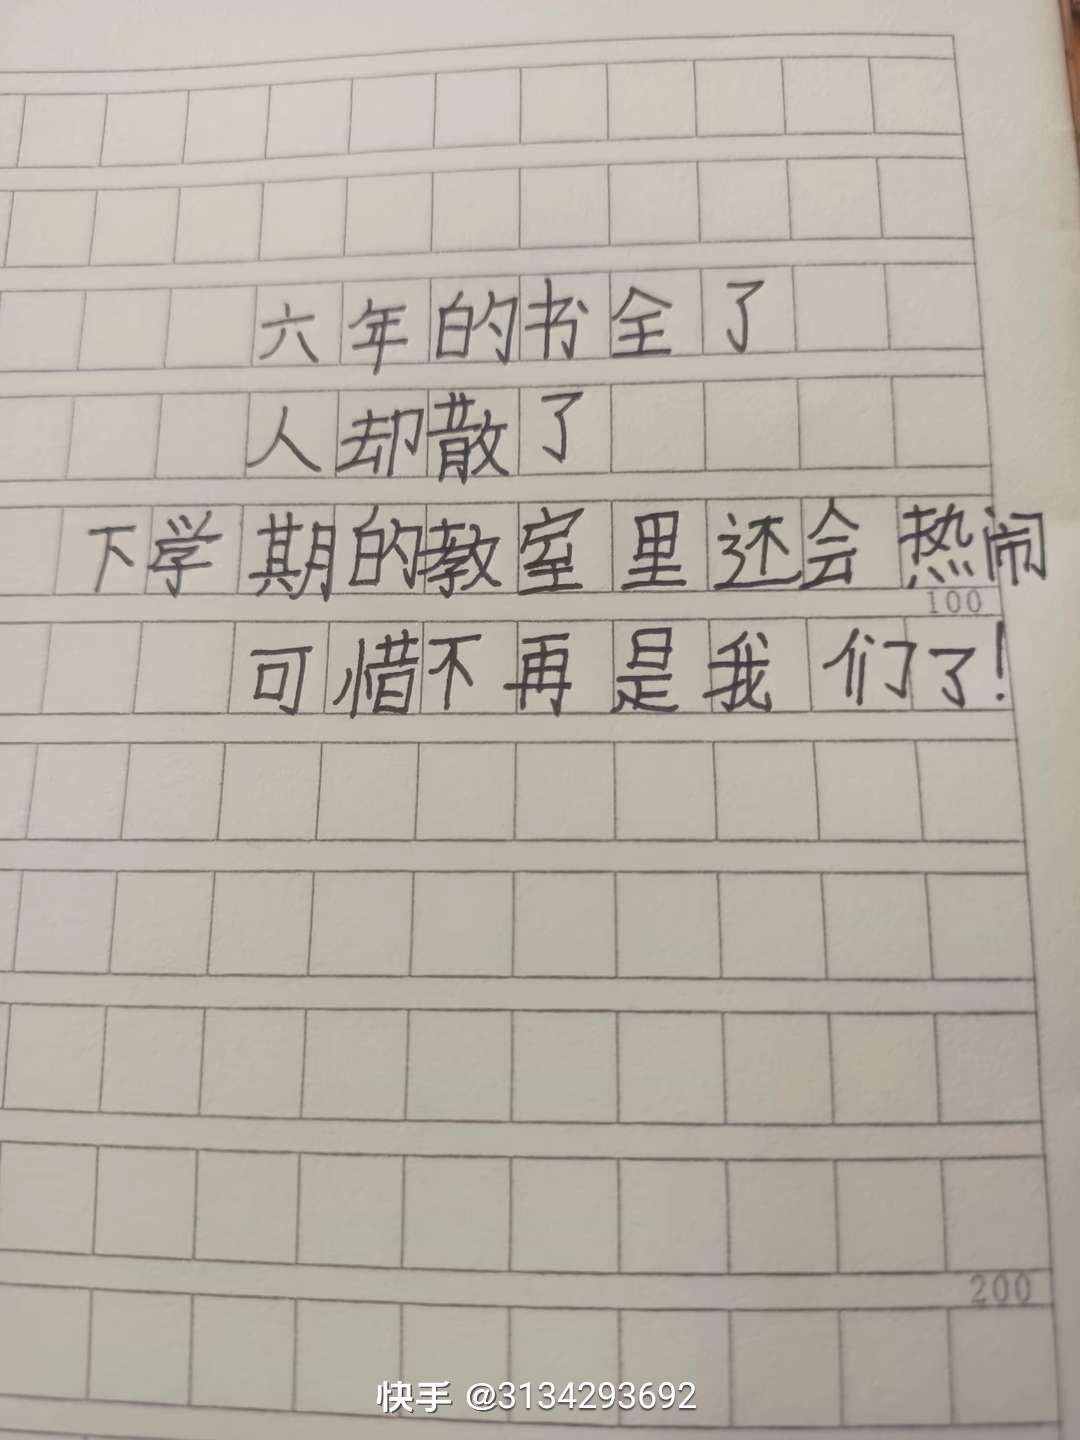 六年的书全了
人却散了
下学期的教室里还会热闹
100
可惜不再是我们了!
200
快手 @3134293692